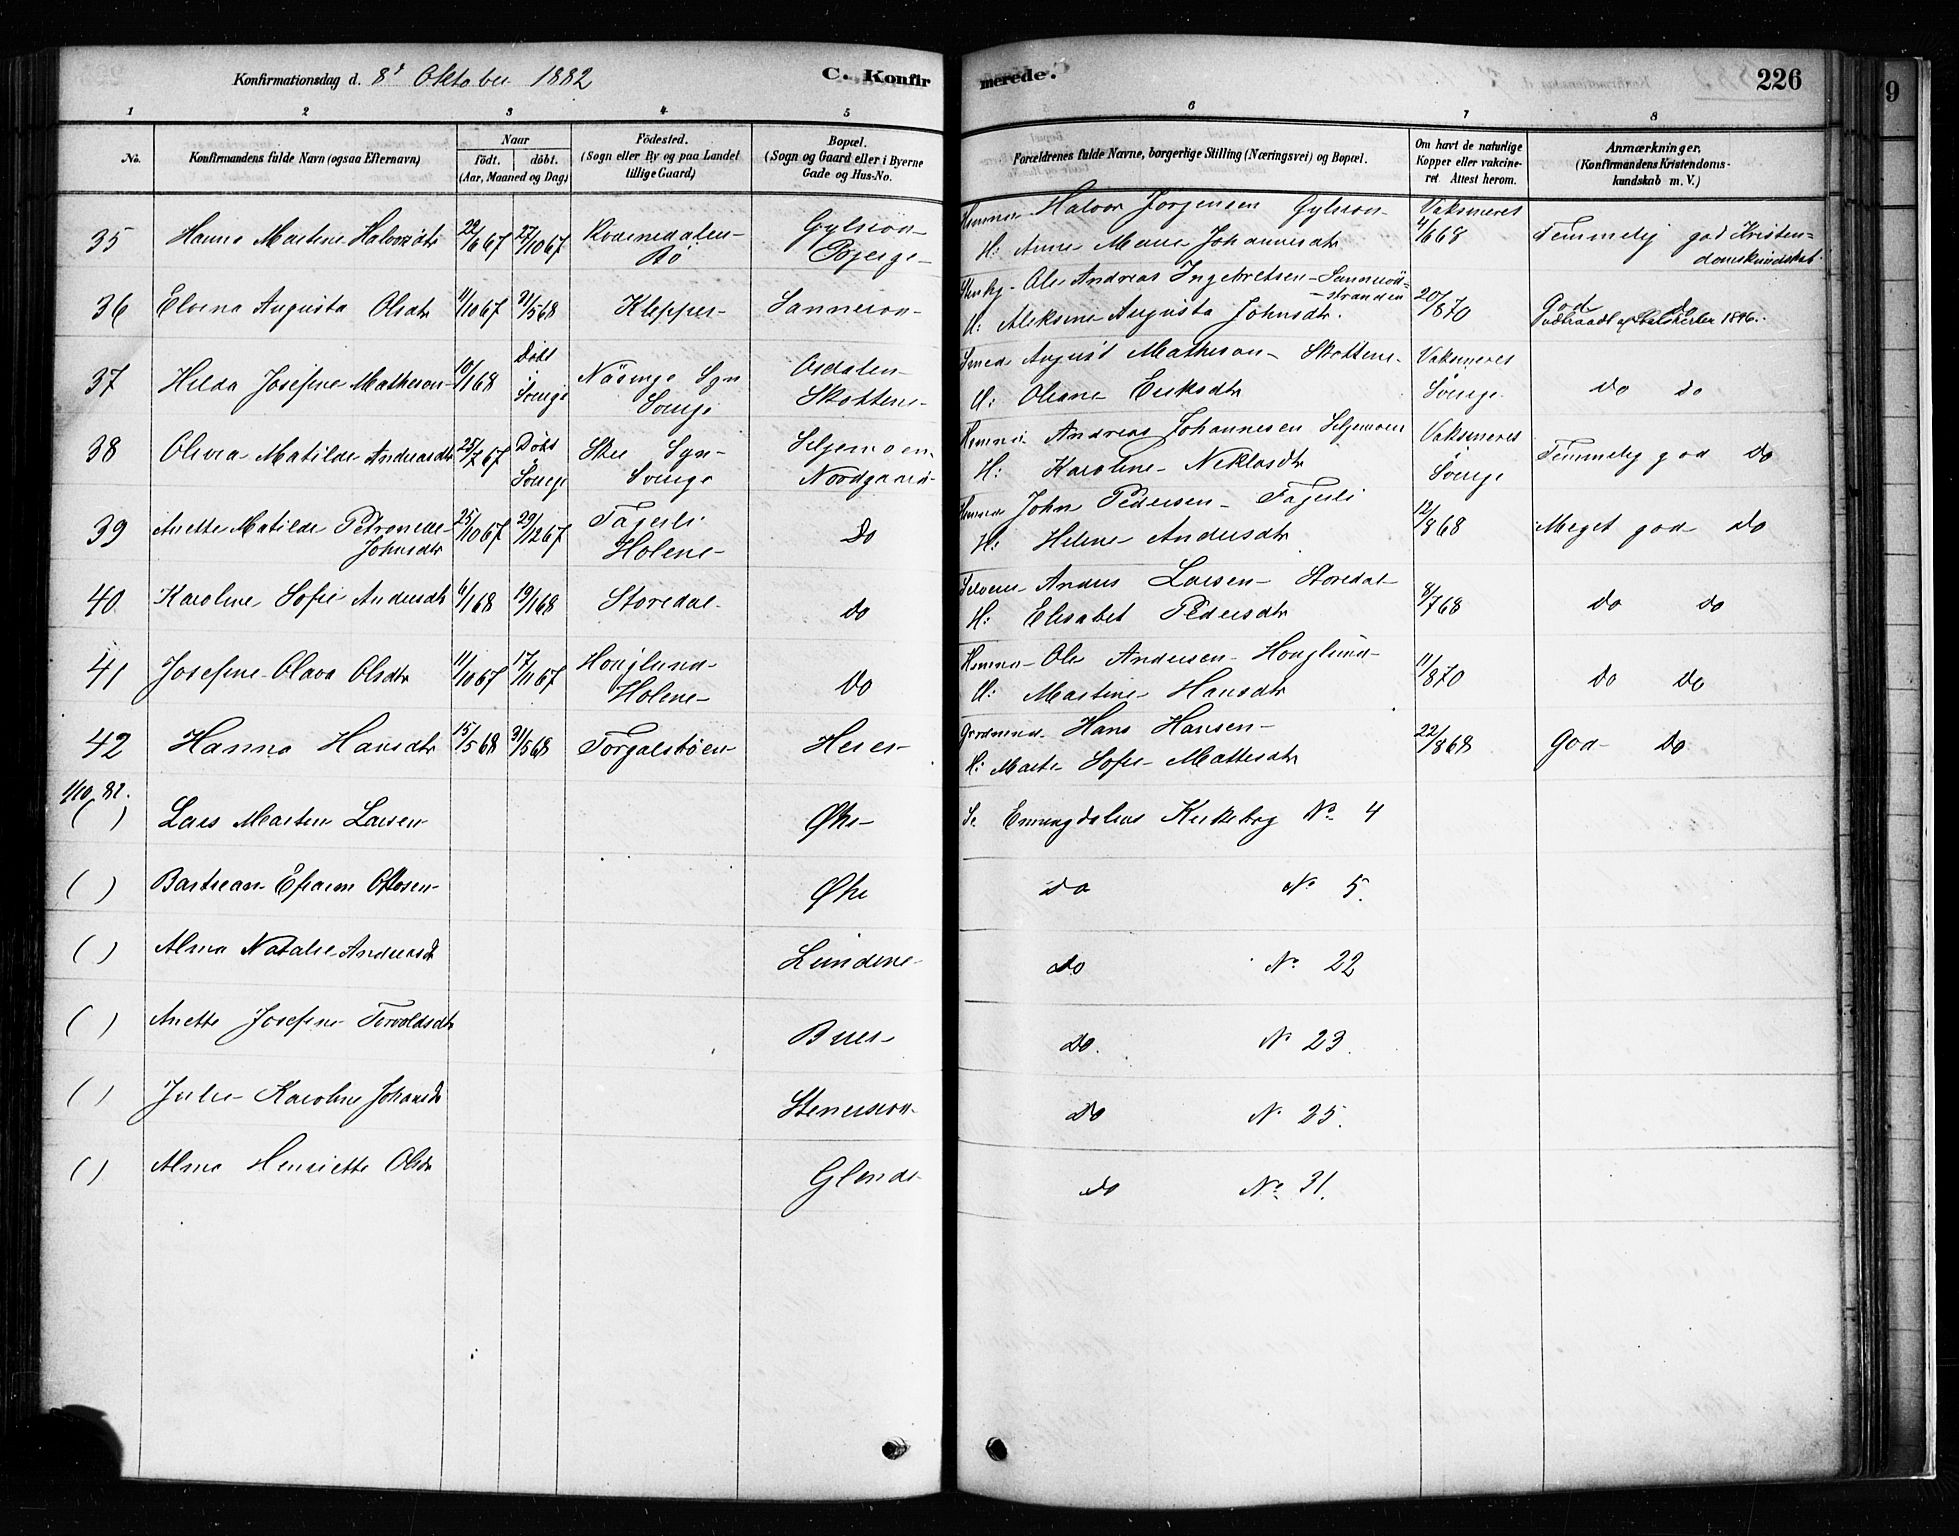 Konfirmationsdag d. 8d Oktober 1882 C. Konfir merede. 226
1 2 3 4 5 6 7 8
No.
Konfirmandens fulde Navn (ogsaa Efternavn)
Naar
födt. döbt.
(Aar, Maaned og Dag)
Födested.
(Sogn eller By og paa Landet
tillige Gaard)
Bopæl.
(Sogn og Gaard eller i Byerne
Gade og Hus-No.
Forældrenes fulde Navne, borgerlige Stilling (Næringsvei) og Bopæl.
Om havt de naturlige
Kopper eller vakcine-
ret. Attest herom.
Anmærkninger,
(Konfirmandens Kristendoms-
kundskab m. V.)
35 Hanna Martine Halvorsdtr 22/6 67 27/10 67
Bö
Halvor Jörgensen
H: Anne Marie Johannesdtr
Vaksineret
4/6 68
Temmelig god Kristen-
domskundskab.
36 Elvina Augusta Olsdtr 11/10 67 31/5 68 Klepper Sanneröd
Ole Andreas Ingebretsen Sanneröd-
stranden
H: Aleksine Augusta Johnsdtr.
20/8 70
God Do
37 Hilda Josefine Matheson 10/1 68
Döbt
i
Sverige
Näsinge Sgn
Sverige
Osdalen
Skottene
Smed August Matheson Skottene
H: Oleane Eriksdtr
Vaksineret
Sverige
Do Do
38 Olivia Matilde Andreasdtr 25/7 67
Döbt
i
Sverige
Skee Sgn
Sverige
Seljemoen
Nordgaard
Andreas Johannesen Seljemoen
H: Karoline Niklasdtr
Vaksineret
i
Sverige
Temmelig god Do
39 Anette Matilde Petronelle
Johnsdtr
25/10 67 29/12 67
Fagerli
Holene
Do
John Pedersen Fagerli
H: Helene Andersdtr
12/8 68
Meget god Do
40 Karoline Sofie Andersdtr 6/1 68 19/1 68 Storedal Do
Selveier Anders Larsen Storedal
H: Elisabet Pedersdtr
8/7 68
Do Do
41 Josefine Olava Olsdtr 11/10 67 17/11 67
Hoaglund
Holene
Do
Ole Andersen Hoaglund
H: Martine Hansdtr
11/8 70
Do Do
42 Hanna Hansdtr 15/5 68 31/5 68 Torgalsböen
Hans Hansen
H: Marte Sofie Mattesdtr
22/8 68
God Do
1/10 82.
( ) Lars Martin Larsen Øke Se Enningdalens Kirkebog No 4
( ) Bastian Efraim Ottosen Øke Do No 5.
( ) Alma Natalie Andreasdt Lundene Do No 22
( ) Anette Josefine Torvoldsdtr Buer Do. No 23.
( ) Julie Karoline Johansdt Do No 25.
( ) Alma Henriette Olsdtr Do No 31.
9